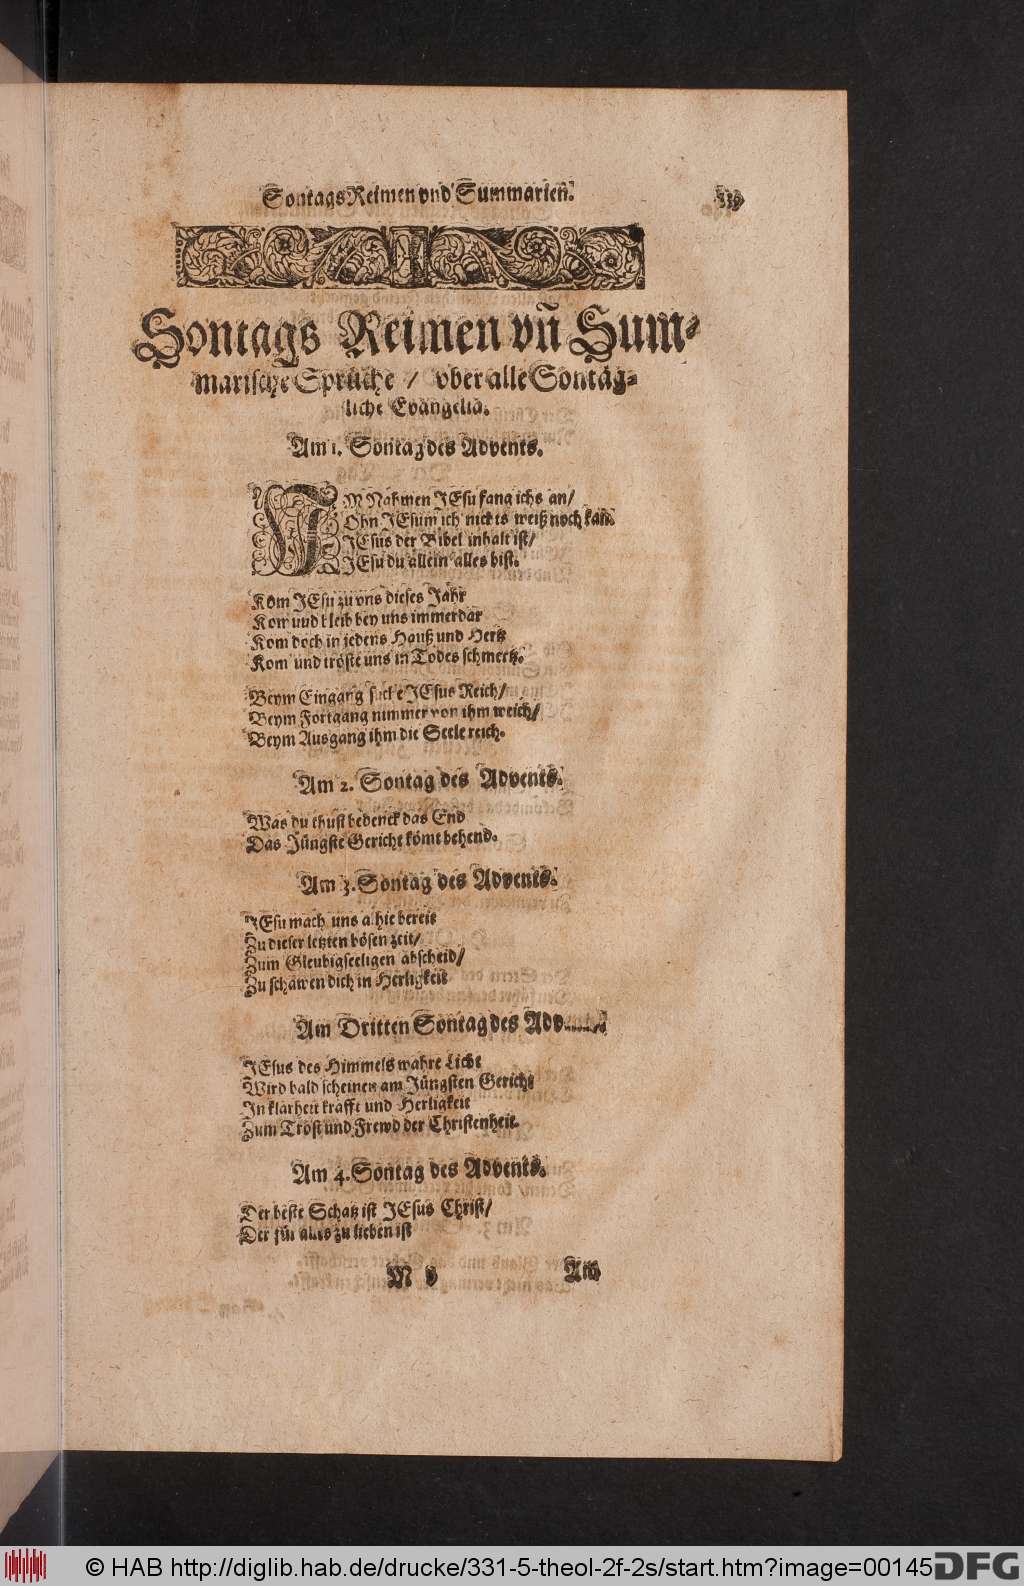 Sontags Reimen vnd Summarien.
Sontags Reimen vñ Sum-
marische Sprüche / vber alle Sontäg-
liche Evangelia.
Am 1. Sontag des Advents.
IM Nahmen JEsu fang ichs an/
Ohn JEsum ich nichts weiß noch kan.
JEsus der Bibel inhalt ist/
JEsu du allein alles bist.
Kom JEsu zu vns dieses Jahr
Kom und bleib bey uns immerdar
Kom doch in jedens Hauß und Hertz
Kom und tröste uns in Todes schmertz.
Beym Eingang suche JEsus Reich/
Beym Fortgang nimmer von ihm weich/
Beym Ausgang ihm die Seele reich.
Am 2. Sontag des Advents.
Was du thust bedenck das End
Das Jüngste Gericht kömt behend.
Am 3. Sontag des Advents.
JEsu mach uns alhie bereit
Zu dieser letzten bösen zeit/
Zum Gleubigseeligen abscheid/
Zu schawen dich in Herligkeit
Am Dritten Sontag des
JEsus des Himmels wahre Licht
Wird bald scheinen am Jüngsten Gericht
In klarheit krafft und Herligkeit
Zum Trost und Frewd der Christenheit.
Am 4. Sontag des Advents.
Der beste Schatz ist JEsus Christ/
Der für alles zu lieben ist
M v
Am
© HAB http://diglib.hab.de/drucke/331-5-theol-2f-2s/start.htm?image=00145
DFG